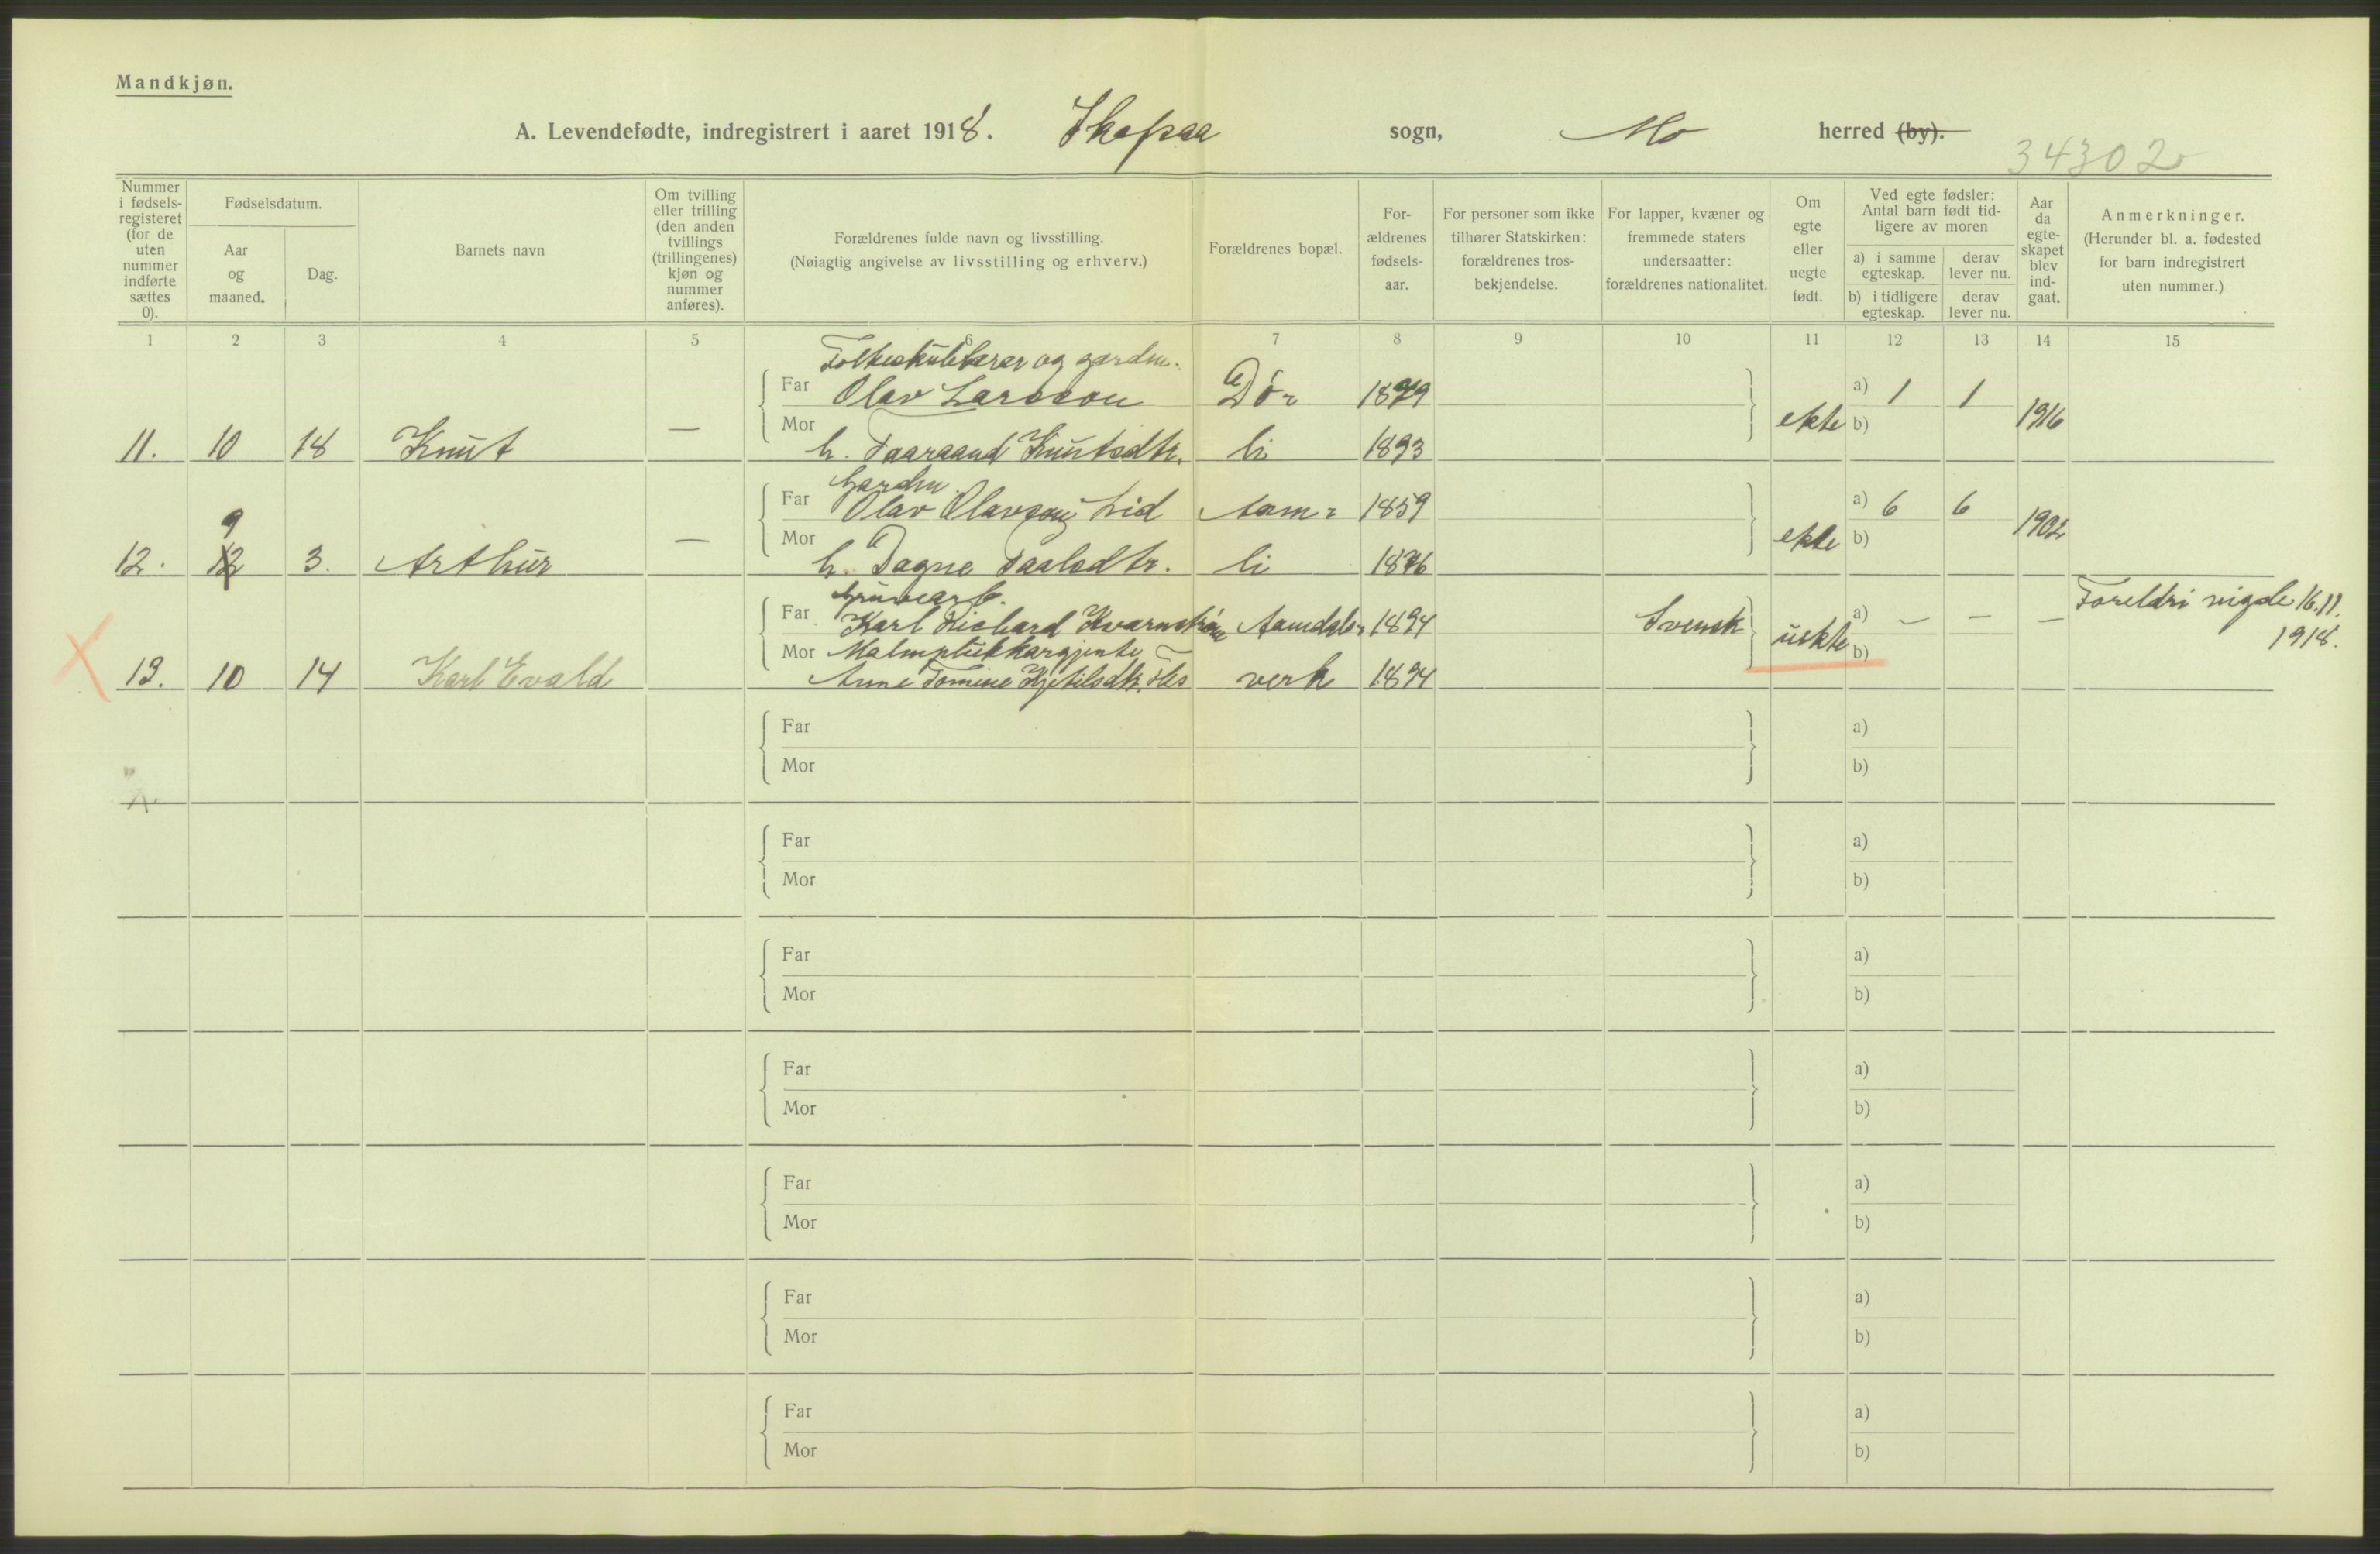 Mandkjøn.
A. Levendefødte, indregistrert i aaret 1918. Skafsaa sogn, Mo herred (by).
34302
Nummer i fødselsregisteret (for de uten nummer indførte sættes 0).
Fødselsdatum.
Aar og maaned.
Dag.
Barnets navn
Om tvilling eller trilling (den anden tvillings (trillingenes) kjøn og nummer anføres).
Forældrenes fulde navn og livsstilling.
(Nøiagtig angivelse av livsstilling og erhverv.)
Forældrenes bopæl.
Forældrenes fødselsaar.
For personer som ikke tilhører Statskirken: forældrenes trosbekjendelse.
For lapper, kvæner og fremmede staters undersaatter: forældrenes nationalitet.
Om egte eller uegte født.
Ved egte fødsler: Antal barn født tidligere av moren
a) i samme egteskap.
derav lever nu.
b) i tidligere egteskap.
derav lever nu.
Aar da egteskapet blev indgaat.
Anmerkninger.
(Herunder bl. a. fødested for barn indregistrert uten nummer.)
1 2 3 4 5 6 7 8 9 10 11 12 13 14 15
Folkeskulelærar og gardm.
Far Olav Larsson Dø- 1879 a) 1 1
Mor ekte b) 1916
11. 10 18 Knut — h. Taaraand Knutsdtr. li 1893
Gardm.
Far Olav Olavson Lid Aam- 1859 a) 6 6
9
Mor ekte b) 1902
12. 12 3. Arthur — h. Dagne Paalsdtr. li 1876
Gruvearb.
Foreldri vigde 16.11.
Far Karl Richard Kvarnstrøm Aamdals- 1894 Svensk a) — — —
1918.
Mor Malmplukkargjente uekte b)
X 13. 10 14 Karl Evald Anne Tomine Kjetilsdtr. verk 1894
Far a)
Mor b)
Far a)
Mor b)
Far a)
Mor b)
Far a)
Mor b)
Far a)
Mor b)
Far a)
Mor b)
Far a)
Mor b)